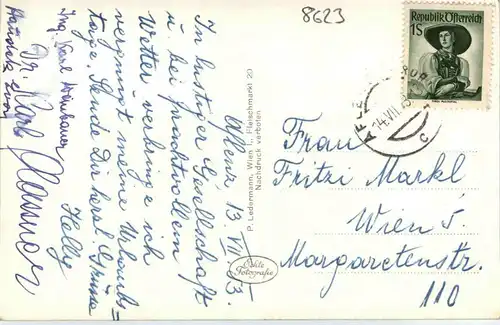 8623
Republik Österreich
1S
AFLE
14.VII.5
C
Aflenz 13. VII. 53.
In lustiger Gesellschaft
u. bei prachtvollem
Wetter verbringe ich
vergnügt meine Urlaubs=
tage. Sende Dir herzl. Grüsse
Helly
Ing. Karl
Dr. Karl
P. Ledermann, Wien I., Fleischmarkt 20
Nachdruck verboten
Echte
Fotografie
Frau
Fritzi Markl
Wien 5.
Margaretenstr.
110